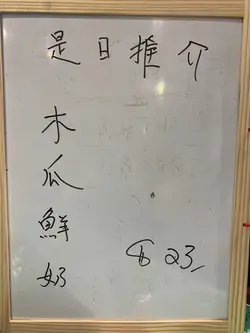 是日推介
木瓜鮮奶
$23,